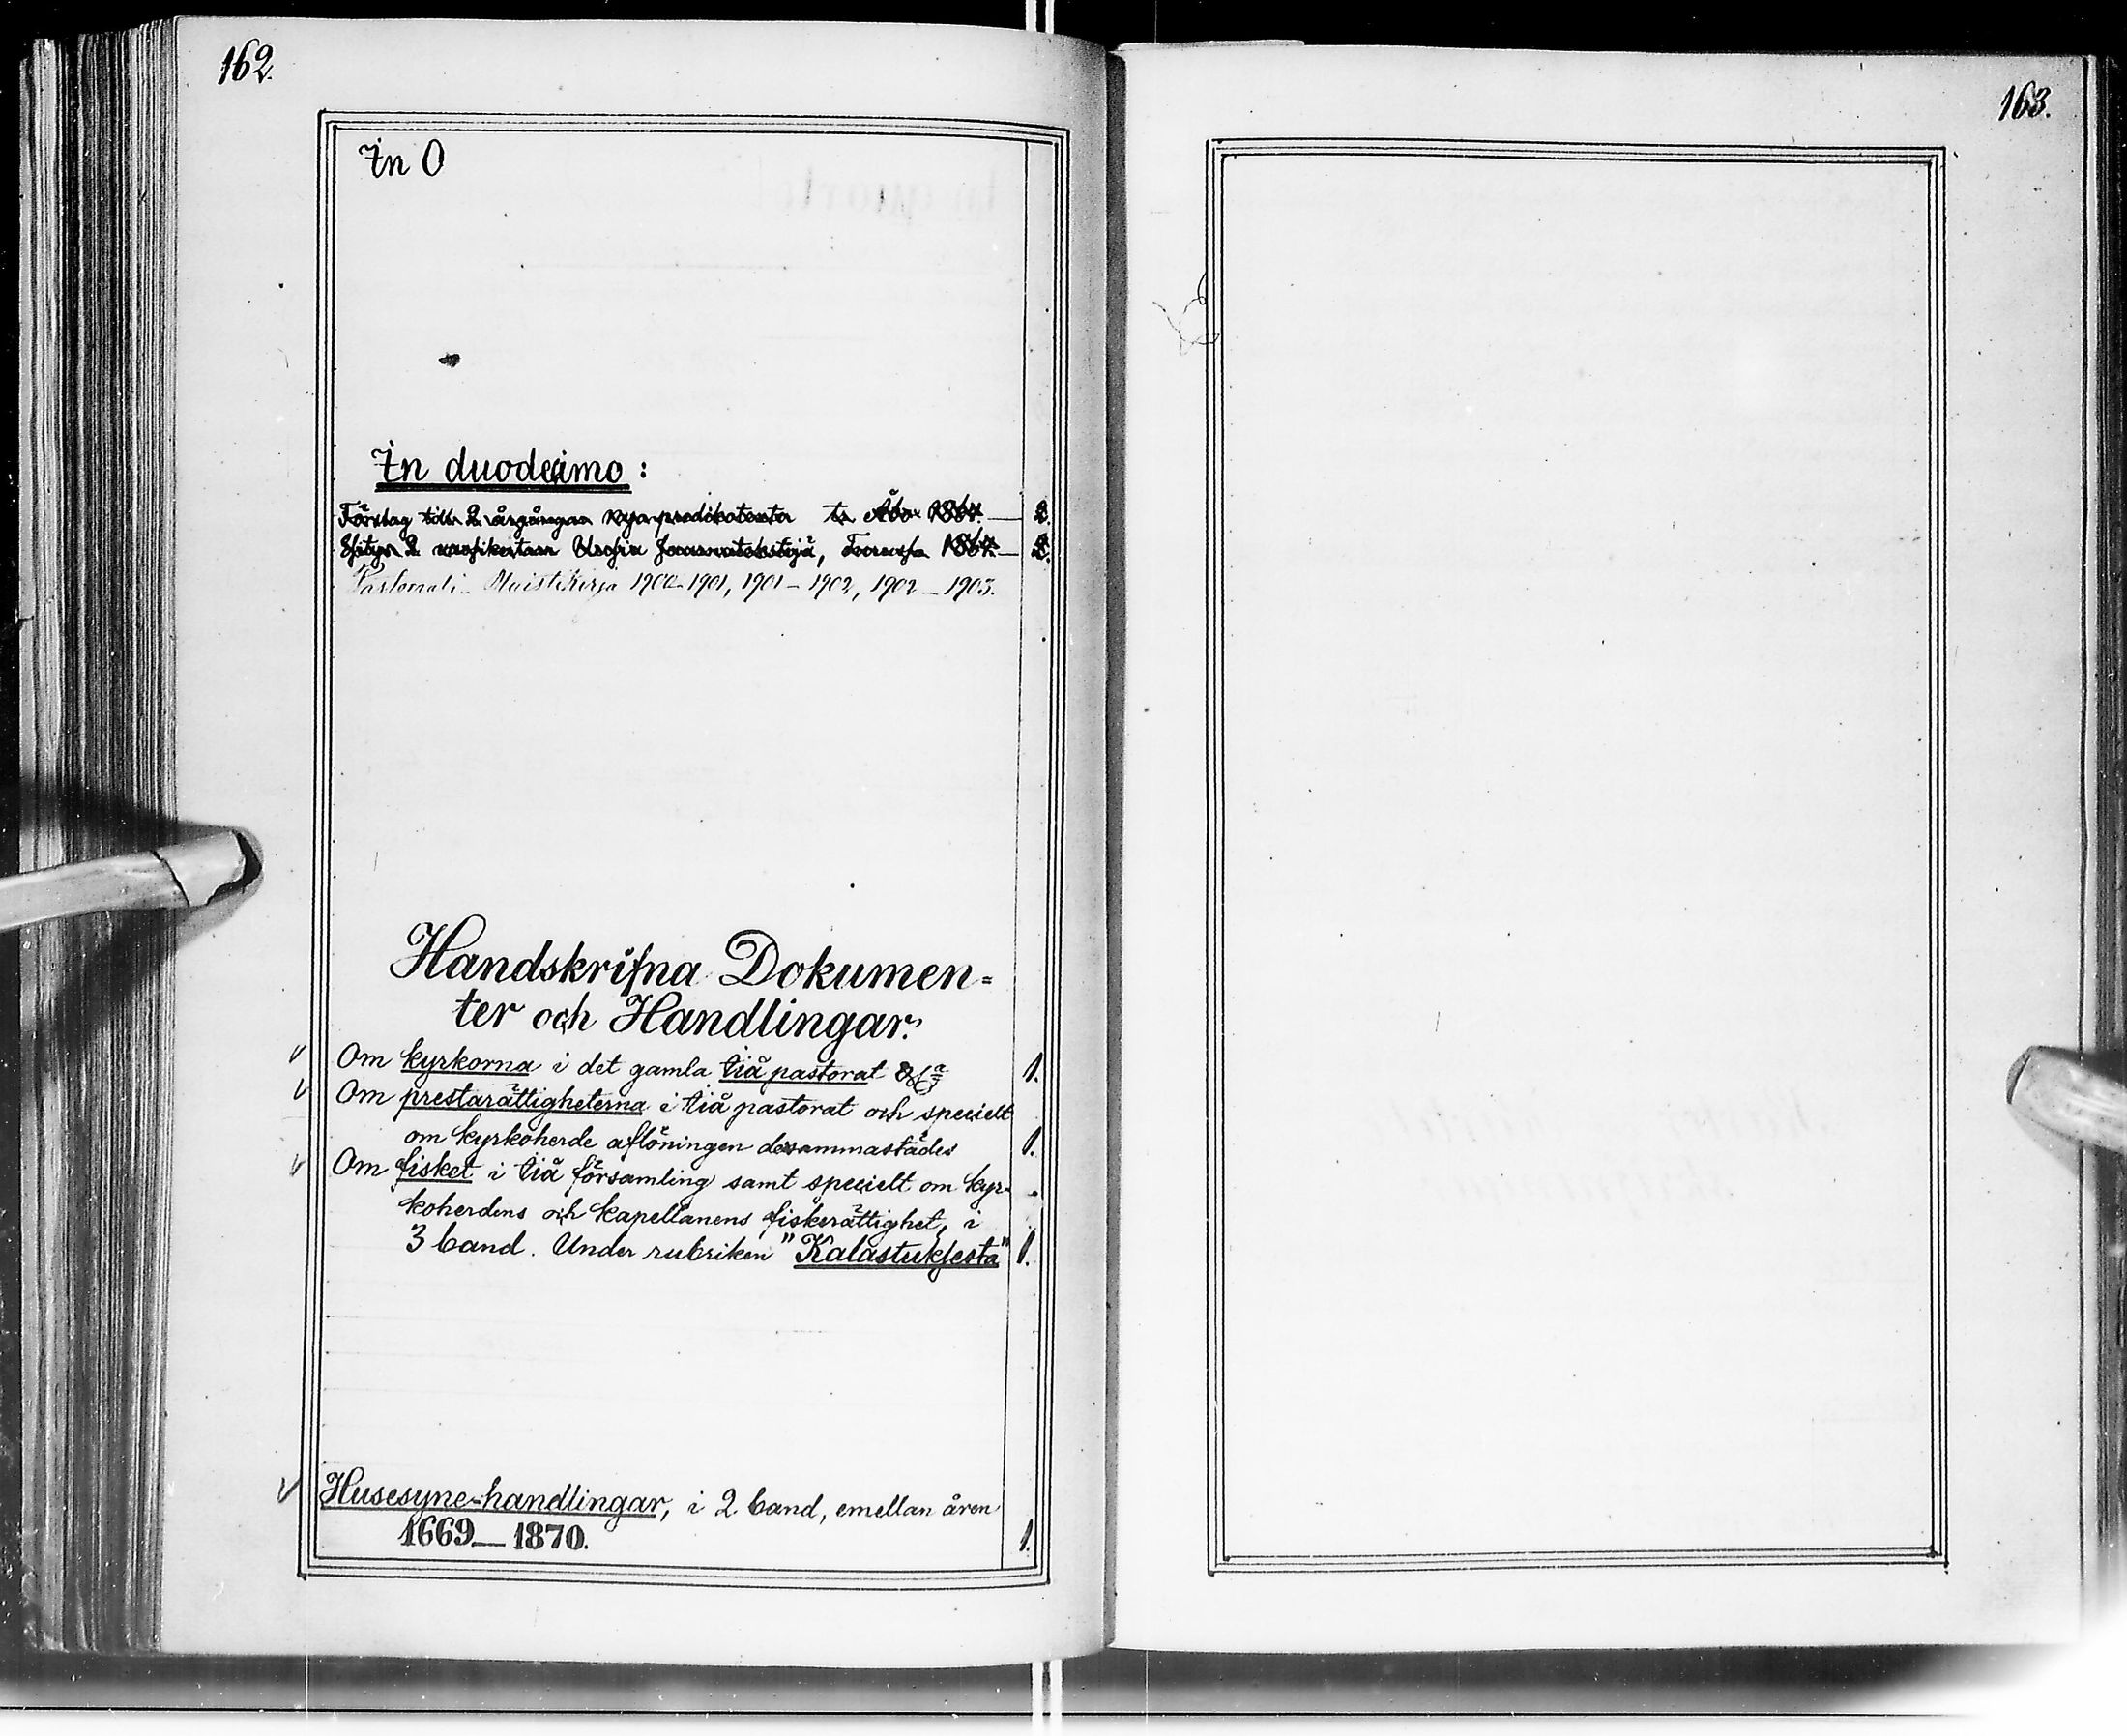 162.
In O
In duodecimo:
Förslag till 2 årgångar nya predikotexter Åbo 1864. 2.
Esitys 2 vuosikertaan Uusia Saarnatekstejä, Turussa 1864. 2.
Pastorali-Muistikirja 1900-1901, 1901-1902, 1902-1903.
Handskrifna Dokumen-
ter och Handlingar.
Om kyrkorna i det gamla Iiå pastorat 1.
Om prestarättigheterna i Iiå pastorat och specielt
om kyrkoherde aflöningen dersammastädes 1.
Om fisket i Iiå församling samt specielt om kyr-
koherdens och kapellanens fiskerättighet, i
3 band. Under rubriken "Kalastuksesta" 1.
Husesyne-handlingar, i 2 band, emellan åren
1669—1870. 1.
163.